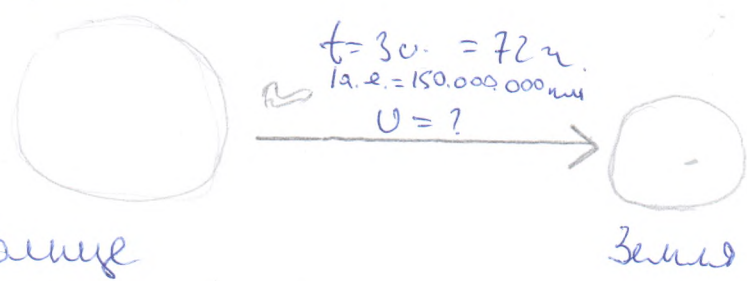 t = 3 с. = 72 ч.
1 а.е. = 150.000.000 км
υ = ?
олнце
Земля